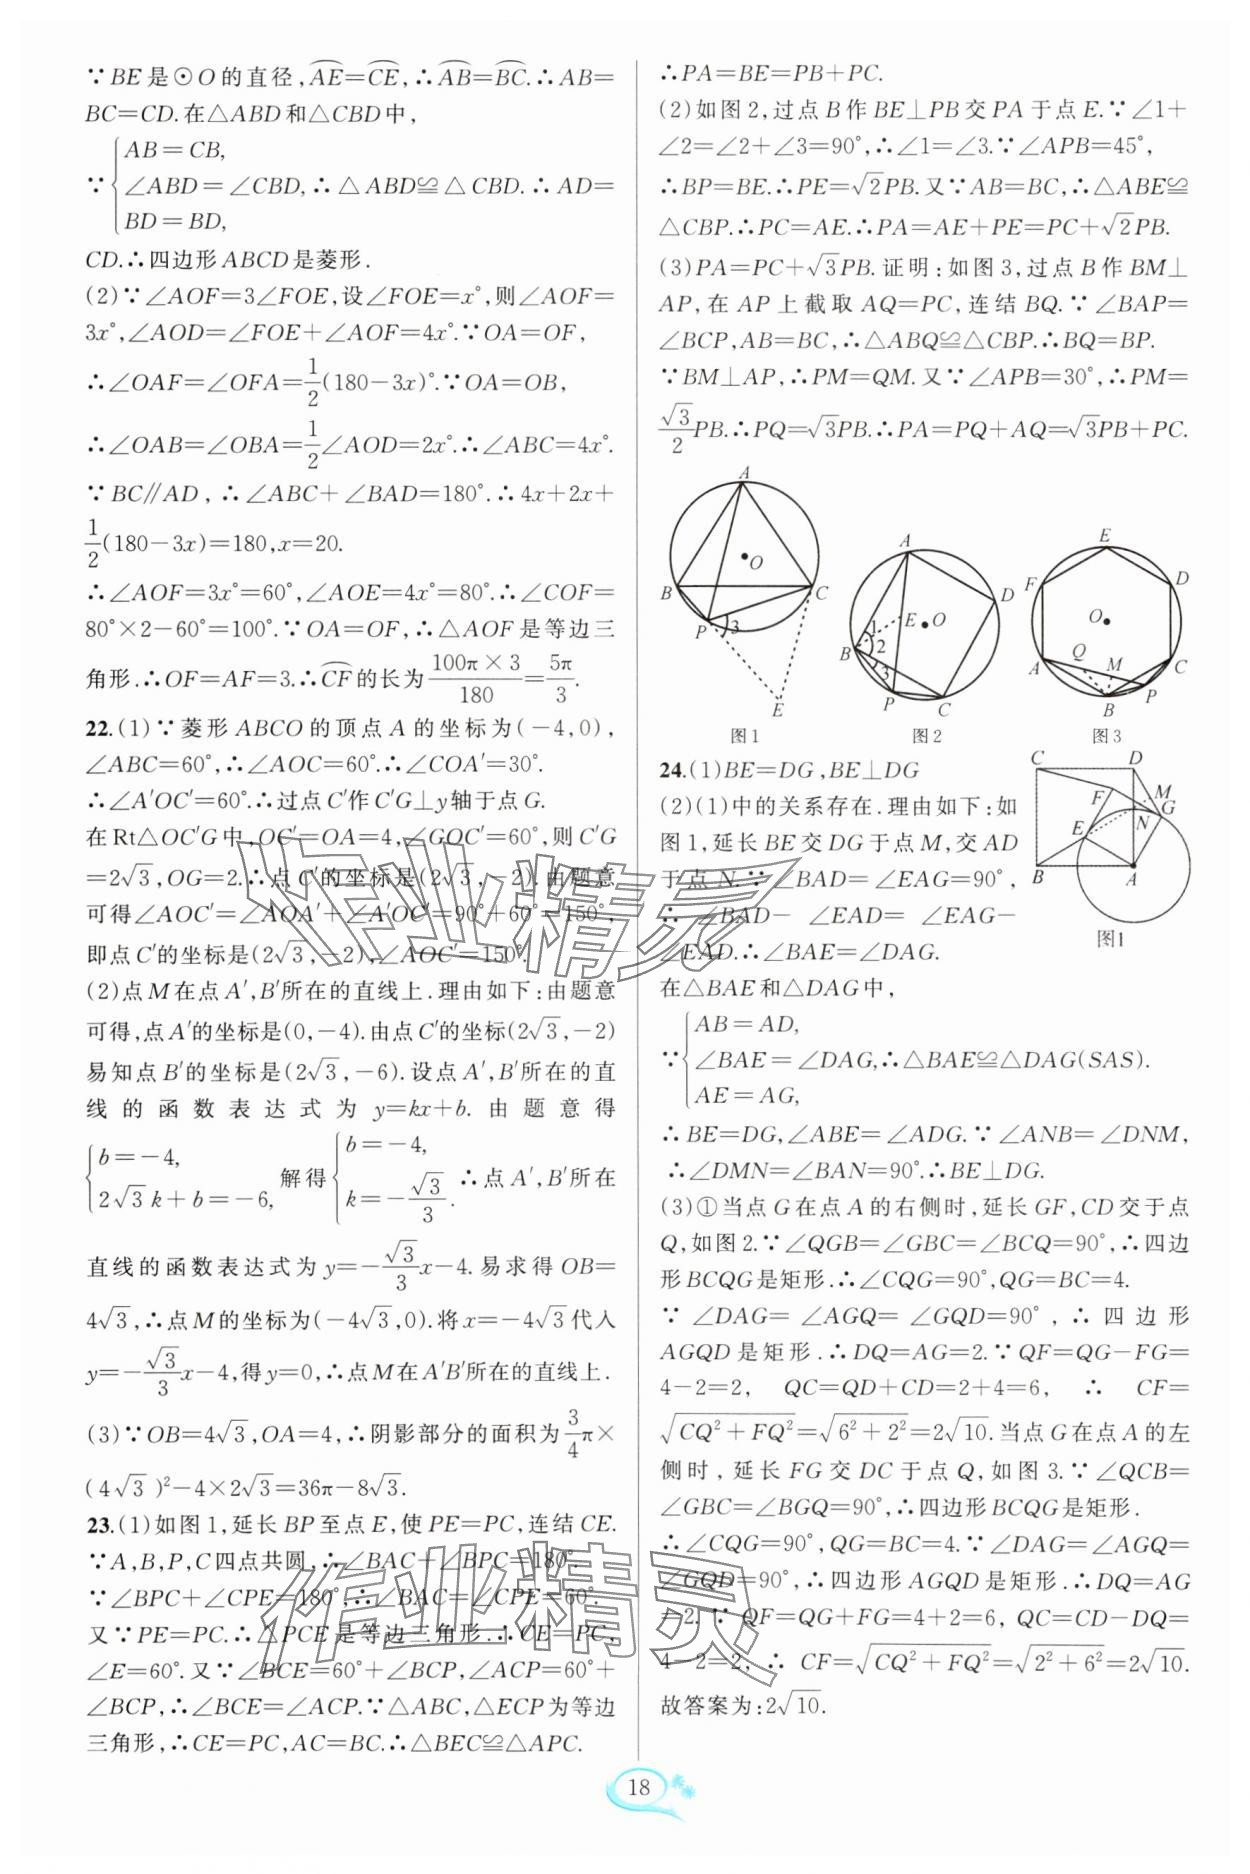 ∵BE是⊙O的直径,⌒AE=⌒CE,∴⌒AB=⌒BC.∴AB=
BC=CD.在△ABD和△CBD中,
AB=CB,
∵ ∠ABD=∠CBD,∴△ABD≌△CBD.∴AD=
BD=BD,
CD.∴四边形ABCD是菱形.
(2)∵∠AOF=3∠FOE,设∠FOE=x°,则∠AOF=
3x°,∠AOD=∠FOE+∠AOF=4x°.∵OA=OF,
∴∠OAF=∠OFA=1/2(180-3x)°.∵OA=OB,
∴∠OAB=∠OBA=1/2∠AOD=2x°.∴∠ABC=4x°.
∵BC∥AD,∴∠ABC+∠BAD=180°.∴4x+2x+
1/2(180-3x)=180,x=20.
∴∠AOF=3x°=60°,∠AOE=4x°=80°.∴∠COF=
80°×2-60°=100°.∵OA=OF,∴△AOF是等边三
角形.∴OF=AF=3.∴⌒CF的长为100π×3/180=5π/3.
22.(1)∵菱形ABCO的顶点A的坐标为(-4,0),
∠ABC=60°,∴∠AOC=60°.∴∠COA′=30°.
∴∠A′OC′=60°.∴过点C′作C′G⊥y轴于点G.
在Rt△OC′G中,OC′=OA=4,∠GOC′=60°,则C′G
=2√3,OG=2.∴点C′的坐标是(2√3,-2).由题意
可得∠AOC′=∠AOA′+∠A′OC′=90°+60°=150°,
即点C′的坐标是(2√3,-2),∠AOC′=150°.
(2)点M在点A′,B′所在的直线上.理由如下:由题意
可得,点A′的坐标是(0,-4).由点C′的坐标(2√3,-2)
易知点B′的坐标是(2√3,-6).设点A′,B′所在的直
线的函数表达式为y=kx+b.由题意得
b=-4,
2√3k+b=-6,
解得
b=-4,
k=-√3/3.
∴点A′,B′所在
直线的函数表达式为y=-√3/3x-4.易求得OB=
4√3,∴点M的坐标为(-4√3,0).将x=-4√3代入
y=-√3/3x-4,得y=0,∴点M在A′B′所在的直线上.
(3)∵OB=4√3,OA=4,∴阴影部分的面积为3/4π×
(4√3)²-4×2√3=36π-8√3.
23.(1)如图1,延长BP至点E,使PE=PC,连结CE.
∵A,B,P,C四点共圆,∴∠BAC+∠BPC=180°.
∵∠BPC+∠CPE=180°,∴∠BAC=∠CPE=60°.
又∵PE=PC.∴△PCE是等边三角形.∴CE=PC,
∠E=60°.又∵∠BCE=60°+∠BCP,∠ACP=60°+
∠BCP,∴∠BCE=∠ACP.∵△ABC,△ECP为等边
三角形,∴CE=PC,AC=BC.∴△BEC≌△APC.
∴PA=BE=PB+PC.
(2)如图2,过点B作BE⊥PB交PA于点E.∵∠1+
∠2=∠2+∠3=90°,∴∠1=∠3.∵∠APB=45°,
∴BP=BE.∴PE=√2PB.又∵AB=BC,∴△ABE≌
△CBP.∴PC=AE.∴PA=AE+PE=PC+√2PB.
(3)PA=PC+√3PB.证明:如图3,过点B作BM⊥
AP,在AP上截取AQ=PC,连结BQ.∵∠BAP=
∠BCP,AB=BC,∴△ABQ≌△CBP.∴BQ=BP.
∵BM⊥AP,∴PM=QM.又∵∠APB=30°,∴PM=
√3/2PB.∴PQ=√3PB.∴PA=PQ+AQ=√3PB+PC.
A O B C P 3 E
图1
A D E O 1 2 3 B P C
图2
E F D O A Q M C P B
图3
24.(1)BE=DG,BE⊥DG
(2)(1)中的关系存在.理由如下:如
图1,延长BE交DG于点M,交AD
于点N.∵∠BAD=∠EAG=90°,
∴∠BAD-∠EAD=∠EAG-
∠EAD.∴∠BAE=∠DAG.
C D F M G E N B A
图1
在△BAE和△DAG中,
AB=AD,
∵ ∠BAE=∠DAG,∴△BAE≌△DAG(SAS).
AE=AG,
∴BE=DG,∠ABE=∠ADG.∵∠ANB=∠DNM,
∴∠DMN=∠BAN=90°.∴BE⊥DG.
(3)①当点G在点A的右侧时,延长GF,CD交于点
Q,如图2.∵∠QGB=∠GBC=∠BCQ=90°,∴四边
形BCQG是矩形.∴∠CQG=90°,QG=BC=4.
∵∠DAG=∠AGQ=∠GQD=90°,∴四边形
AGQD是矩形.∴DQ=AG=2.∵QF=QG-FG=
4-2=2,QC=QD+CD=2+4=6,∴CF=
√(CQ²+FQ²)=√(6²+2²)=2√10.当点G在点A的左
侧时,延长FG交DC于点Q,如图3.∵∠QCB=
∠GBC=∠BGQ=90°,∴四边形BCQG是矩形.
∴∠CQG=90°,QG=BC=4.∵∠DAG=∠AGQ=
∠GQD=90°,∴四边形AGQD是矩形.∴DQ=AG
=2.∵QF=QG+FG=4+2=6,QC=CD-DQ=
4-2=2,∴CF=√(CQ²+FQ²)=√(2²+6²)=2√10.
故答案为:2√10.
作业精灵
作业精灵
18